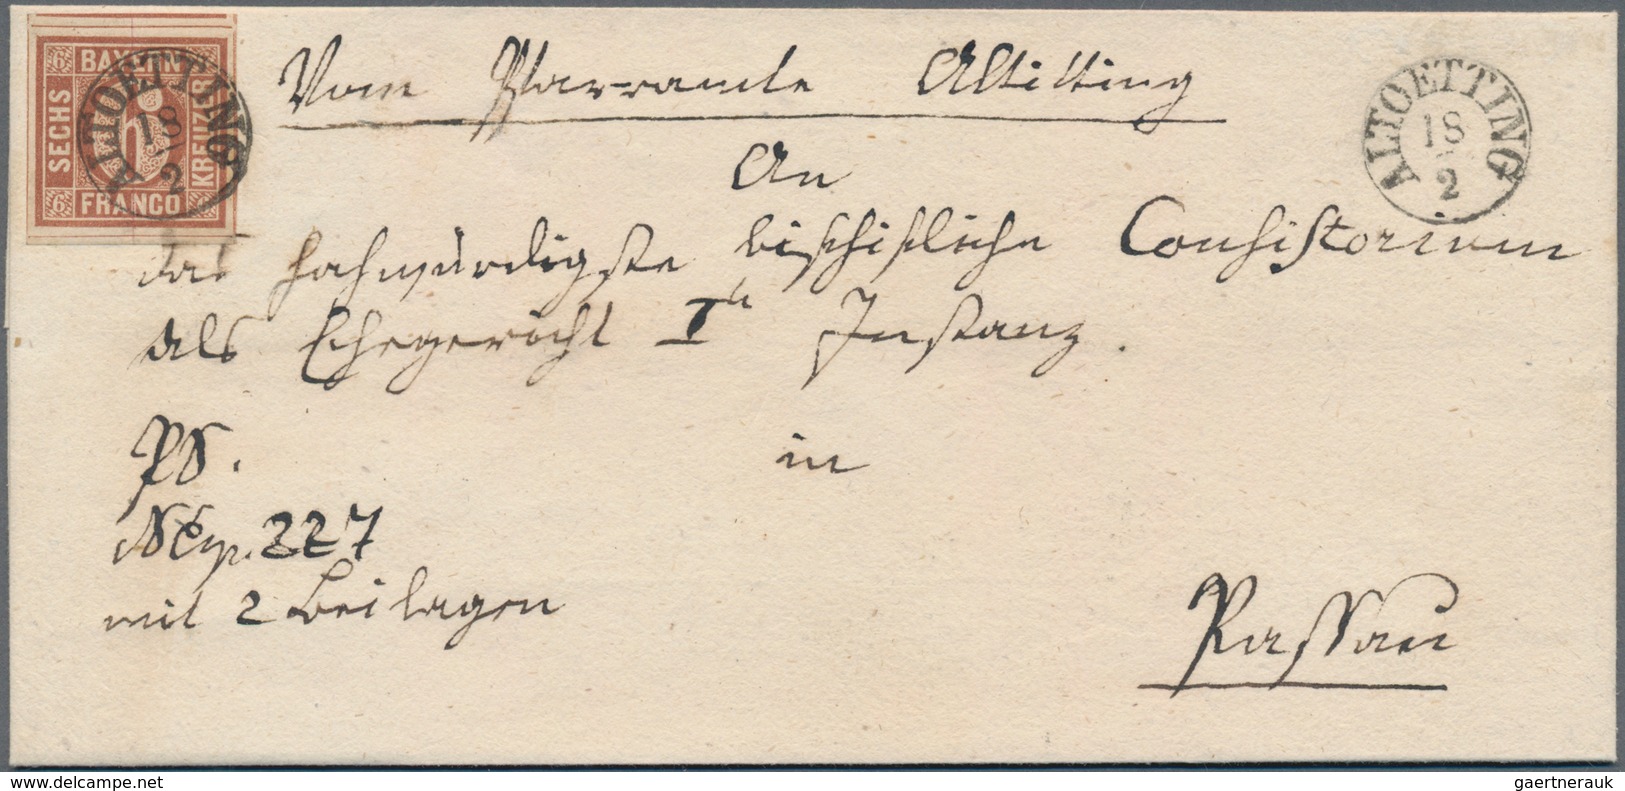 BAYERN
SECHS
KREUZER
FRANCO
6
6
6
ALTOETTING
18
2
Vom Pfarramte Altötting
ALTOETTING
18
2
An
das hochwürdigste bischöfliche Consistorium
als Ehegericht I Instanz.
PS.
in
NExp. 227
mit 2 Beilagen
Passau
www.delcampe.net
gaertnerauk